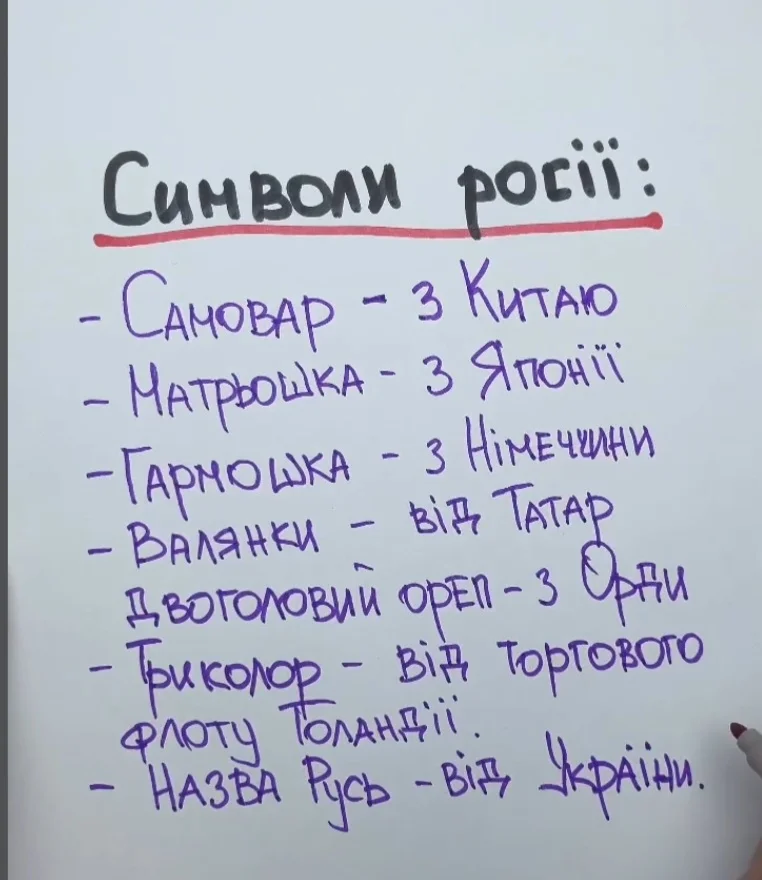 Символи росії:
- Самовар - з Китаю
- Матрьошка - з Японії
- Гармошка - з Німеччини
- Валянки - від Татар
Двоголовий орел - з Орди
- Триколор - від торгового
флоту Голандії.
- Назва Русь - від України.